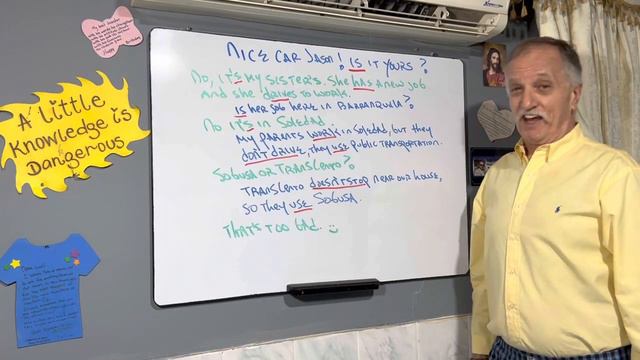 My best teacher
Happy Birthday
A little
Knowledge is
Dangerous
NICE CAR JASON! IS IT YOURS?
No, it's my sister's. She has a new job
and she drives to work.
Is her job here in Barranquilla?
No it's in Soledad.
My parents work in Soledad, but they
don't drive, they use public transportation.
Sobusa or Translento?
Translento doesn't stop near our house,
so they use Sobusa.
That's too bad.